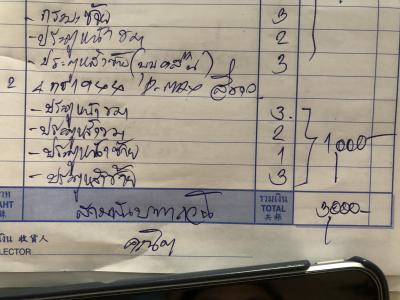 - กระบะซ้าย 3
- ประตูหน้าขวา 2
- ประตูหลังซ้าย 3
2
- ประตูหน้าขวา 3
- ประตูหลังขวา 2
- ประตูหน้าซ้าย 1 1,000
- ประตูหลังซ้าย 3
บาท BAHT สามพันบาทถ้วน รวมเงิน TOTAL 共銖 3,000-
收貨人
LLECTOR